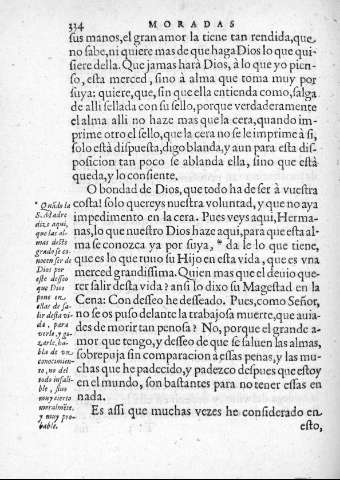 334 MORADAS
sus manos, el gran amor la tiene tan rendida, que
no sabe, ni quiere mas de que haga Dios lo que qui-
siere della. Que jamas harà Dios, à lo que yo pien-
so, esta merced, sino à alma que toma muy por
suya: quiere, que, sin que ella entienda como, salga
de alli sellada con su sello, porque verdaderamente
el alma alli no haze mas que la cera, quando im-
prime otro el sello, que la cera no se le imprime à si,
solo està dispuesta, digo blanda, y aun para esta dis-
posicion tan poco se ablanda ella, sino que està
queda, y lo consiente.
O bondad de Dios, que todo ha de ser à vuestra
costa! solo quereys nuestra voluntad, y que no aya
impedimento en la cera. Pues veys aqui, Herma-
nas, lo que nuestro Dios haze aqui, para que esta al-
ma se conozca ya por suya, * da le lo que tiene,
que es lo que tuuo su Hijo en esta vida, que es vna
merced grandissima. Quien mas que el deuio que-
rer salir desta vida? ansi lo dixo su Magestad en la
Cena: Con desseo he desseado. Pues, como Señor,
no se os puso delante la trabajosa muerte, que auia-
des de morir tan penosa? No, porque el grande a-
mor que tengo, y desseo de que se saluen las almas,
sobrepuja sin comparacion à essas penas, y las mu-
chas que he padecido, y padezco despues que estoy
en el mundo, son bastantes para no tener essas en
nada.
Es assi que muchas vezes he considerado en
esto,
* Quãdo la
S. Madre
dize aqui,
que las al-
mas deste
grado se co-
nocen ser de
Dios por
este desseo
que Dios
pone en
ellas de sa-
lir desta vi-
da, para
verlo, y go-
zarle, ha-
bla de vn
conocimien-
to, no del
todo infali-
ble, sino
muy cierto
moralmẽte,
y muy pro-
bable.